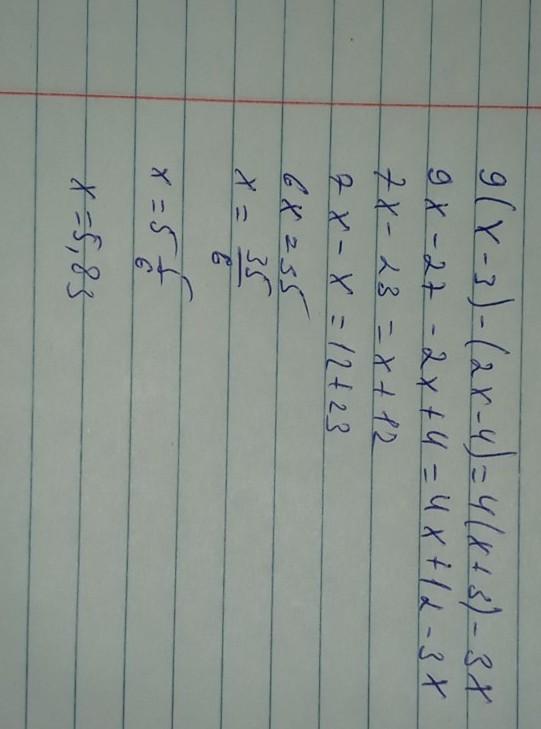 9(x-3)-(2x-4)=4(x+3)-3x
9x-27-2x+4=4x+12-3x
7x-23=x+12
7x-x=12+23
6x=35
x=35/6
x=5 5/6
x=5,83